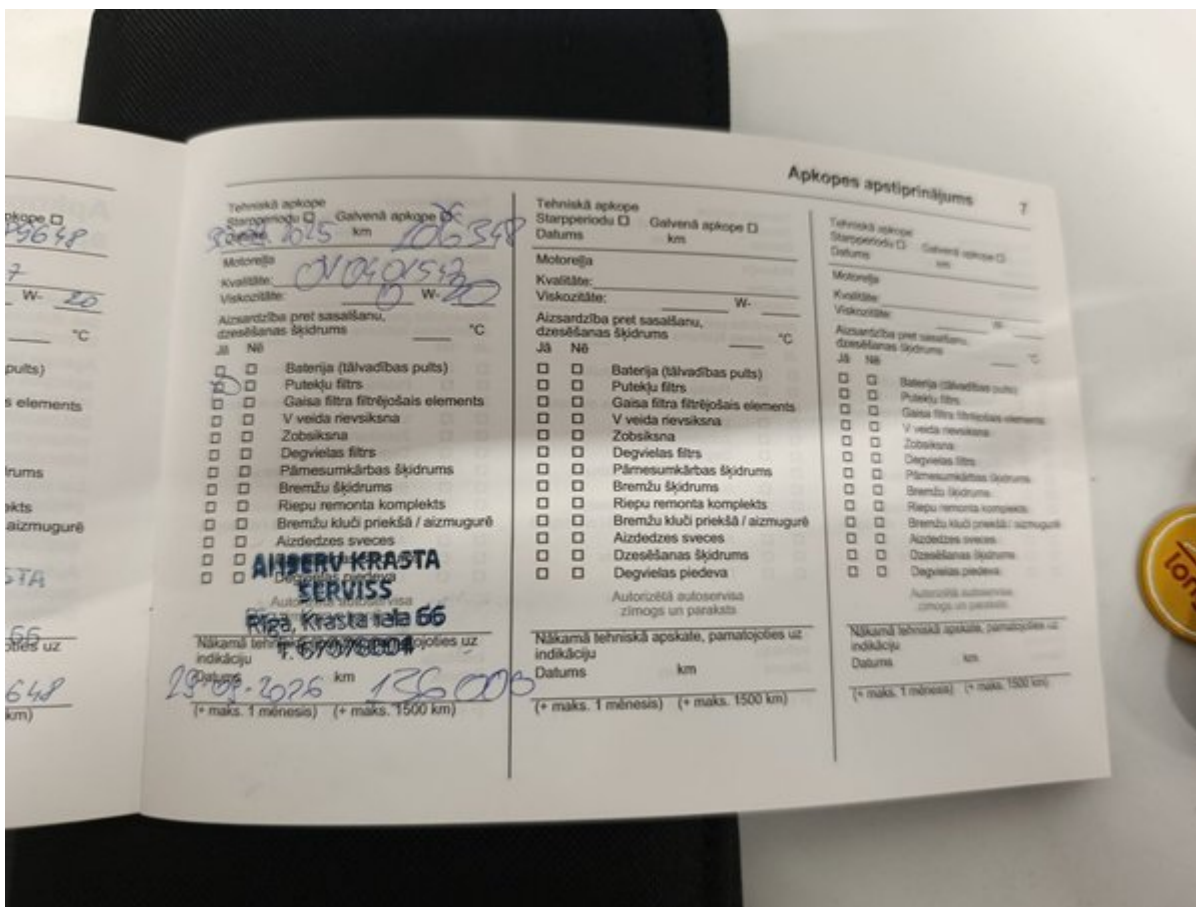 Apkopes apstiprinājums 7
apkope ☐
W- 20
°C
pults)
s elements
šķidrums
aizmugurē
66
648
km)
Tehniskā apkope
Starpperiodu ☐ Galvenā apkope ☒
2025 km 106348
Motoreļļa
Kvalitāte: OV0401547
Viskozitāte: 0 W- 20
Aizsardzība pret sasalšanu,
dzesēšanas šķidrums °C
Jā Nē
☐ ☐ Baterija (tālvadības pults)
☒ ☐ Putekļu filtrs
☐ ☐ Gaisa filtra filtrējošais elements
☐ ☐ V veida rievsiksna
☐ ☐ Zobsiksna
☐ ☐ Degvielas filtrs
☐ ☐ Pārnesumkārbas šķidrums
☐ ☐ Bremžu šķidrums
☐ ☐ Riepu remonta komplekts
☐ ☐ Bremžu kluči priekšā / aizmugurē
☐ ☐ Aizdedzes sveces
☐ ☐ KRASTA
☐ ☐ Degvielas piedeva
SERVISS
Autorizētā autoservisa
Rīga, Krasta iela 66
Nākamā tehniskā pamatojoties uz
T. 67078004
indikāciju
Datums km
2026 136 000
(+ maks. 1 mēnesis) (+ maks. 1500 km)
Tehniskā apkope
Starpperiodu ☐ Galvenā apkope ☐
Datums km
Motoreļļa
Kvalitāte:
Viskozitāte: W-
Aizsardzība pret sasalšanu,
dzesēšanas šķidrums °C
Jā Nē
☐ ☐ Baterija (tālvadības pults)
☐ ☐ Putekļu filtrs
☐ ☐ Gaisa filtra filtrējošais elements
☐ ☐ V veida rievsiksna
☐ ☐ Zobsiksna
☐ ☐ Degvielas filtrs
☐ ☐ Pārnesumkārbas šķidrums
☐ ☐ Bremžu šķidrums
☐ ☐ Riepu remonta komplekts
☐ ☐ Bremžu kluči priekšā / aizmugurē
☐ ☐ Aizdedzes sveces
☐ ☐ Dzesēšanas šķidrums
☐ ☐ Degvielas piedeva
Autorizētā autoservisa
zīmogs un paraksts
Nākamā tehniskā apskate, pamatojoties uz
indikāciju
Datums km
(+ maks. 1 mēnesis) (+ maks. 1500 km)
Tehniskā apkope
Starpperiodu ☐ Galvenā apkope ☐
Datums km
Motoreļļa
Kvalitāte:
Viskozitāte: W-
Aizsardzība pret sasalšanu,
dzesēšanas šķidrums °C
Jā Nē
☐ ☐ Baterija (tālvadības pults)
☐ ☐ Putekļu filtrs
☐ ☐ Gaisa filtra filtrējošais elements
☐ ☐ V veida rievsiksna
☐ ☐ Zobsiksna
☐ ☐ Degvielas filtrs
☐ ☐ Pārnesumkārbas šķidrums
☐ ☐ Bremžu šķidrums
☐ ☐ Riepu remonta komplekts
☐ ☐ Bremžu kluči priekšā / aizmugurē
☐ ☐ Aizdedzes sveces
☐ ☐ Dzesēšanas šķidrums
☐ ☐ Degvielas piedeva
Autorizētā autoservisa
zīmogs un paraksts
Nākamā tehniskā apskate, pamatojoties uz
indikāciju
Datums km
(+ maks. 1 mēnesis) (+ maks. 1500 km)